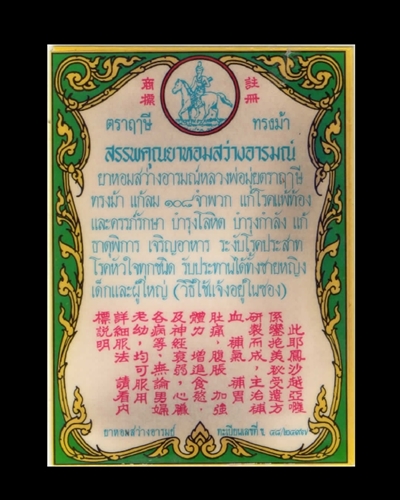 商標 註冊
ตราฤๅษี ทรงม้า
สรรพคุณยาหอมสว่างอารมณ์
ยาหอมสว่างอารมณ์หลวงพ่อมุ่ยตราฤๅษี
ทรงม้า แก้ลม ๑๐๘ จำพวก แก้โรคแพ้ท้อง
และครรภ์รักษา บำรุงโลหิต บำรุงกำลัง แก้
ธาตุพิการ เจริญอาหาร ระงับโรคประสาท
โรคหัวใจทุกชนิด รับประทานได้ทั้งชายหญิง
เด็กและผู้ใหญ่ (วิธีใช้แจ้งอยู่ในซอง)
此耶鳳沙越亞
係鑾抱美秘受遺方
研製而成，主治補
血，補氣，補胃
肚痛，腹脹，加強
體力，增進食慾，
及神經衰弱，心臟
各病等，無論男婦
老幼，均可服用
詳細服法，請看內
標說明
ยาหอมสว่างอารมย์ ทะเบียนเลขที่